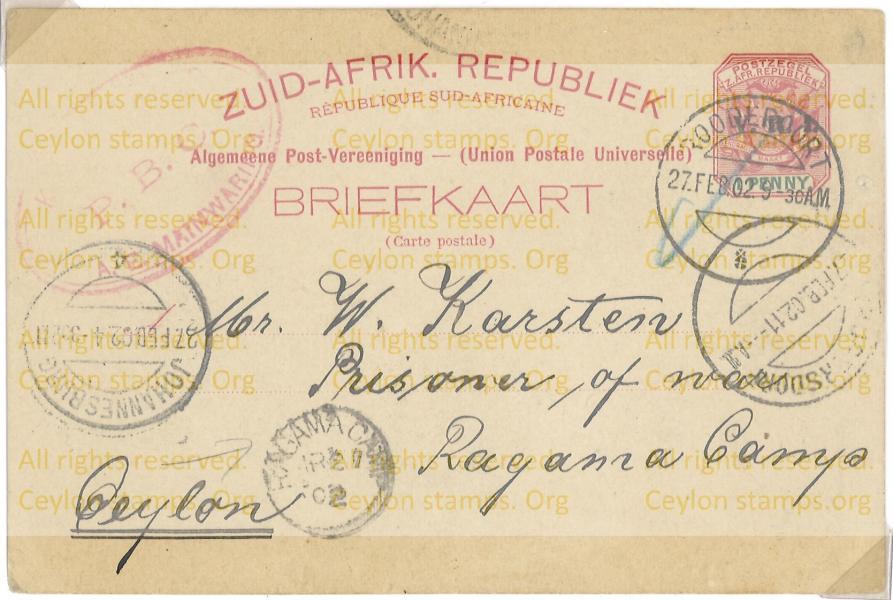 ZUID-AFRIK. REPUBLIEK
RÉPUBLIQUE SUD-AFRICAINE
Algemeene Post-Vereeniging — (Union Postale Universelle)
BRIEFKAART
(Carte postale)
POSTZEGEL
Z. AFR. REPUBLIEK
1 PENNY
ROODEPOORT
27.FEB.02.9-30AM.
P. B. C.
MAINWARING
JOHANNESBURG
27 FEB 02
FEB.02.11-
Mr. W. Karsten
Prisoner of war
Ragama Camp
Ceylon
RAGAMA CAMP
02
All rights reserved. All rights reserved. All rights reserved.
Ceylon stamps. Org Ceylon stamps. Org Ceylon stamps. Org
All rights reserved. All rights reserved. All rights reserved.
Ceylon stamps. Org Ceylon stamps. Org Ceylon stamps. Org
All rights reserved. All rights reserved. All rights reserved.
Ceylon stamps. Org Ceylon stamps. Org Ceylon stamps. Org
All rights reserved. All rights reserved. All rights reserved.
Ceylon stamps. Org Ceylon stamps. Org Ceylon stamps. Org